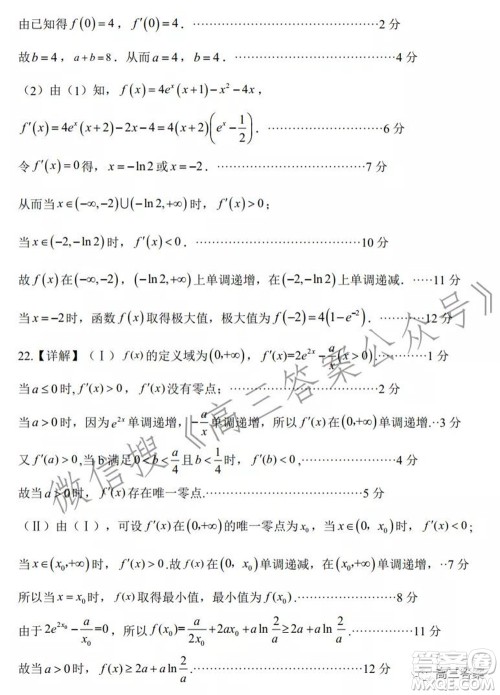 由已知得 f(0)=4，f′(0)=4．……………………………………2 分
故 b=4，a+b=8．从而 a=4，b=4．……………………………………4 分
（2）由（1）知，f(x)=4eˣ(x+1)-x²-4x，
f′(x)=4eˣ(x+2)-2x-4=4(x+2)(eˣ-1/2)．……………………6 分
令 f′(x)=0 得，x=-ln2 或 x=-2．……………………………7 分
从而当 x∈(-∞,-2)∪(-ln2,+∞) 时，f′(x)>0；
当 x∈(-2,-ln2) 时，f′(x)<0．……………………………10 分
故 f(x) 在 (-∞,-2)，(-ln2,+∞) 上单调递增，在 (-2,-ln2) 上单调递减．……11 分
当 x=-2 时，函数 f(x) 取得极大值，极大值为 f(-2)=4(1-e⁻²)．…………12 分
22.【详解】（Ⅰ）f(x) 的定义域为 (0,+∞)，f′(x)=2e²ˣ-a/x(x>0).…………1 分
当 a≤0 时，f′(x)>0，f′(x) 没有零点；
当 a>0 时，因为 e²ˣ 单调递增，-a/x 单调递增，所以 f′(x) 在 (0,+∞) 单调递增.··3 分
又 f′(a)>0，当 b 满足 0<b<a/4 且 b<1/4 时，f′(b)<0，……………………4 分
故当 a>0 时，f′(x) 存在唯一零点.……………………………5 分
（Ⅱ）由（Ⅰ），可设 f′(x) 在 (0,+∞) 的唯一零点为 x₀，当 x∈(0，x₀) 时，f′(x)<0；
当 x∈(x₀,+∞) 时，f′(x)>0.故 f(x) 在 (0，x₀) 单调递减，在 (x₀,+∞) 单调递增，··7 分
所以当 x=x₀ 时，f(x) 取得最小值，最小值为 f(x₀).………………8 分
由于 2e²ˣ⁰-a/x₀=0，所以 f(x₀)=a/2x₀+2ax₀+a ln 2/a≥2a+a ln 2/a.
故当 a>0 时，f(x)≥2a+a ln 2/a.……………………………12 分
微信搜《高三答案公众号》
高三答案